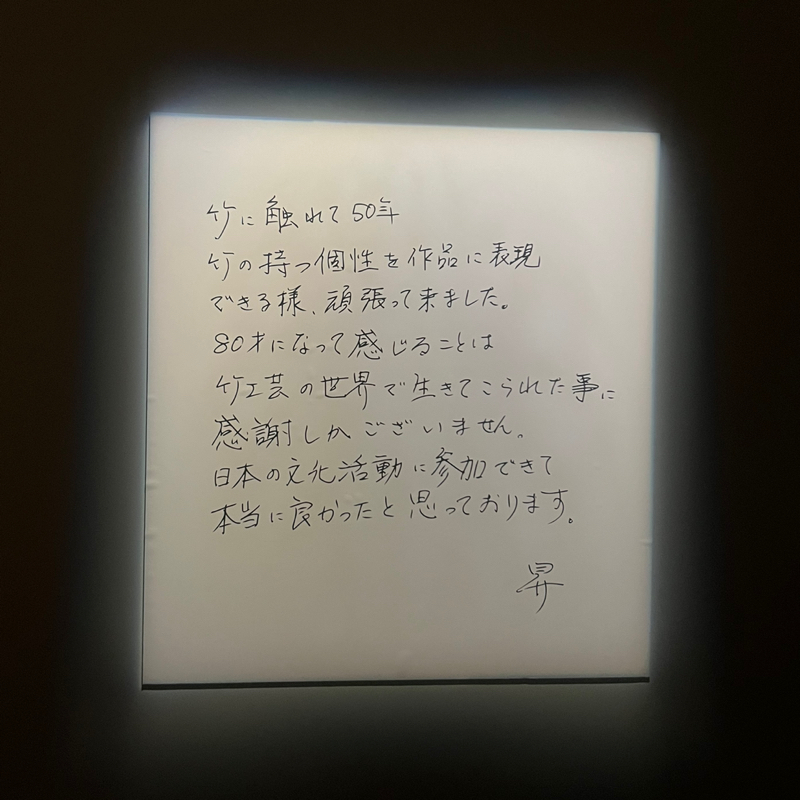 竹に触れて50年
竹の持つ個性を作品に表現
できる様、頑張って来ました。
80才になって感じることは
竹工芸の世界で生きてこられた事に
感謝しかございません。
日本の文化活動に参加できて
本当に良かったと思っております。
昇